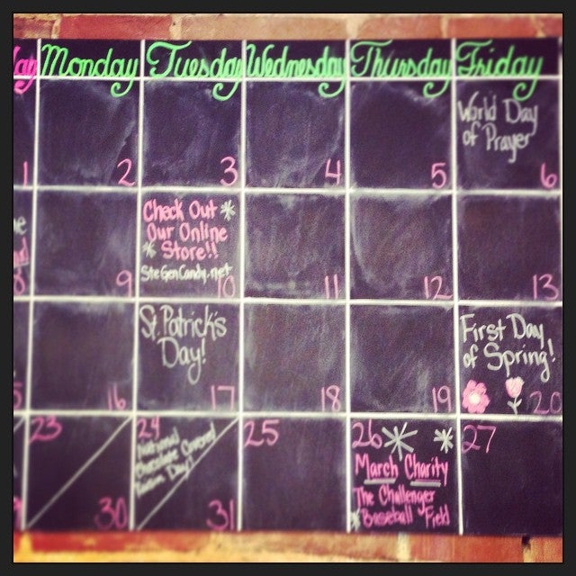 Monday Tuesday Wednesday Thursday Friday
World Day
of Prayer
1 2 3 4 5 6
Check Out
Our Online
Store!!
SteGenCandy.net
9 10 11 12 13
St. Patrick's
Day!
First Day
of Spring!
16 17 18 19 20
23 24 25 26 27
National
Chocolate Covered
Raisin Day!
March Charity
The Challenger
Baseball Field
30 31